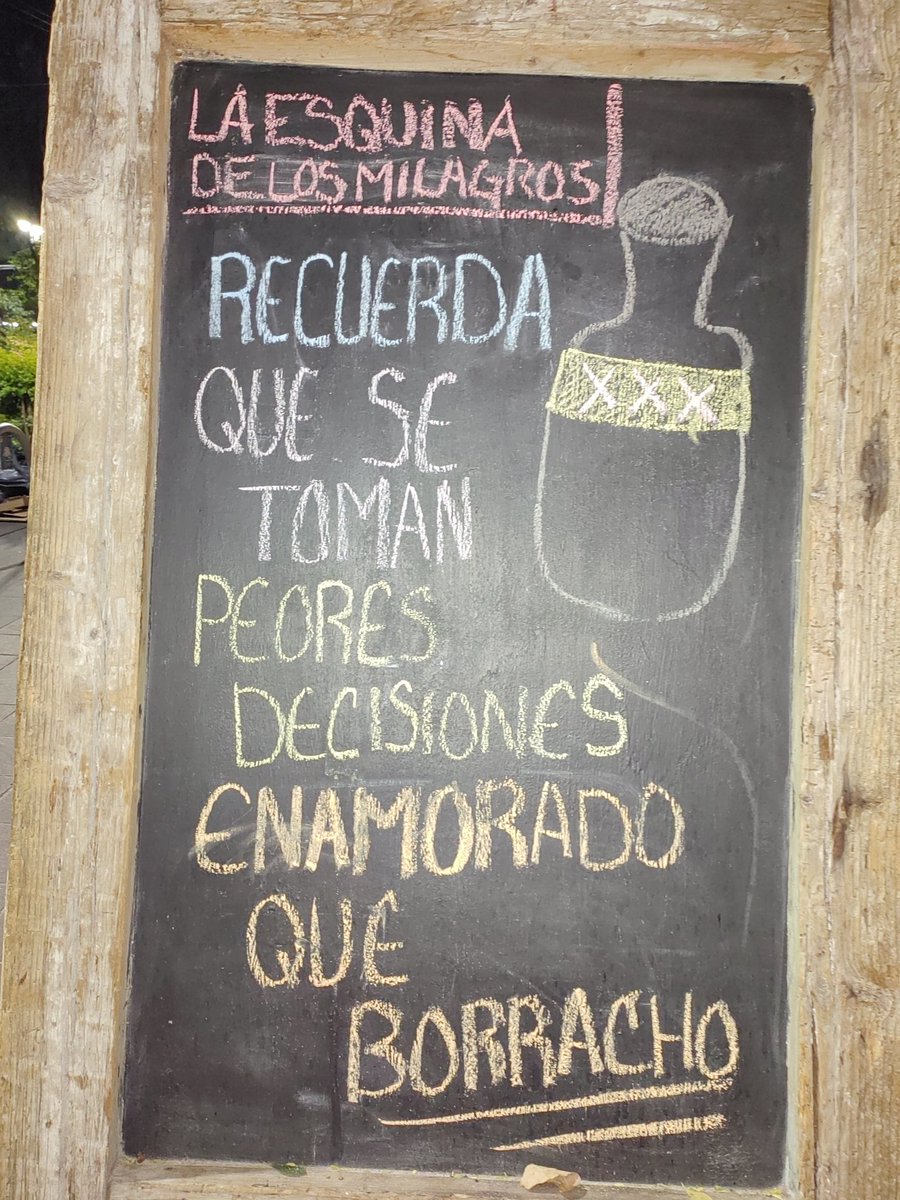 LA ESQUINA
DE LOS MILAGROS
RECUERDA
QUE SE
TOMAN
PEORES
DECISIONES
ENAMORADO
QUE
BORRACHO
XXX